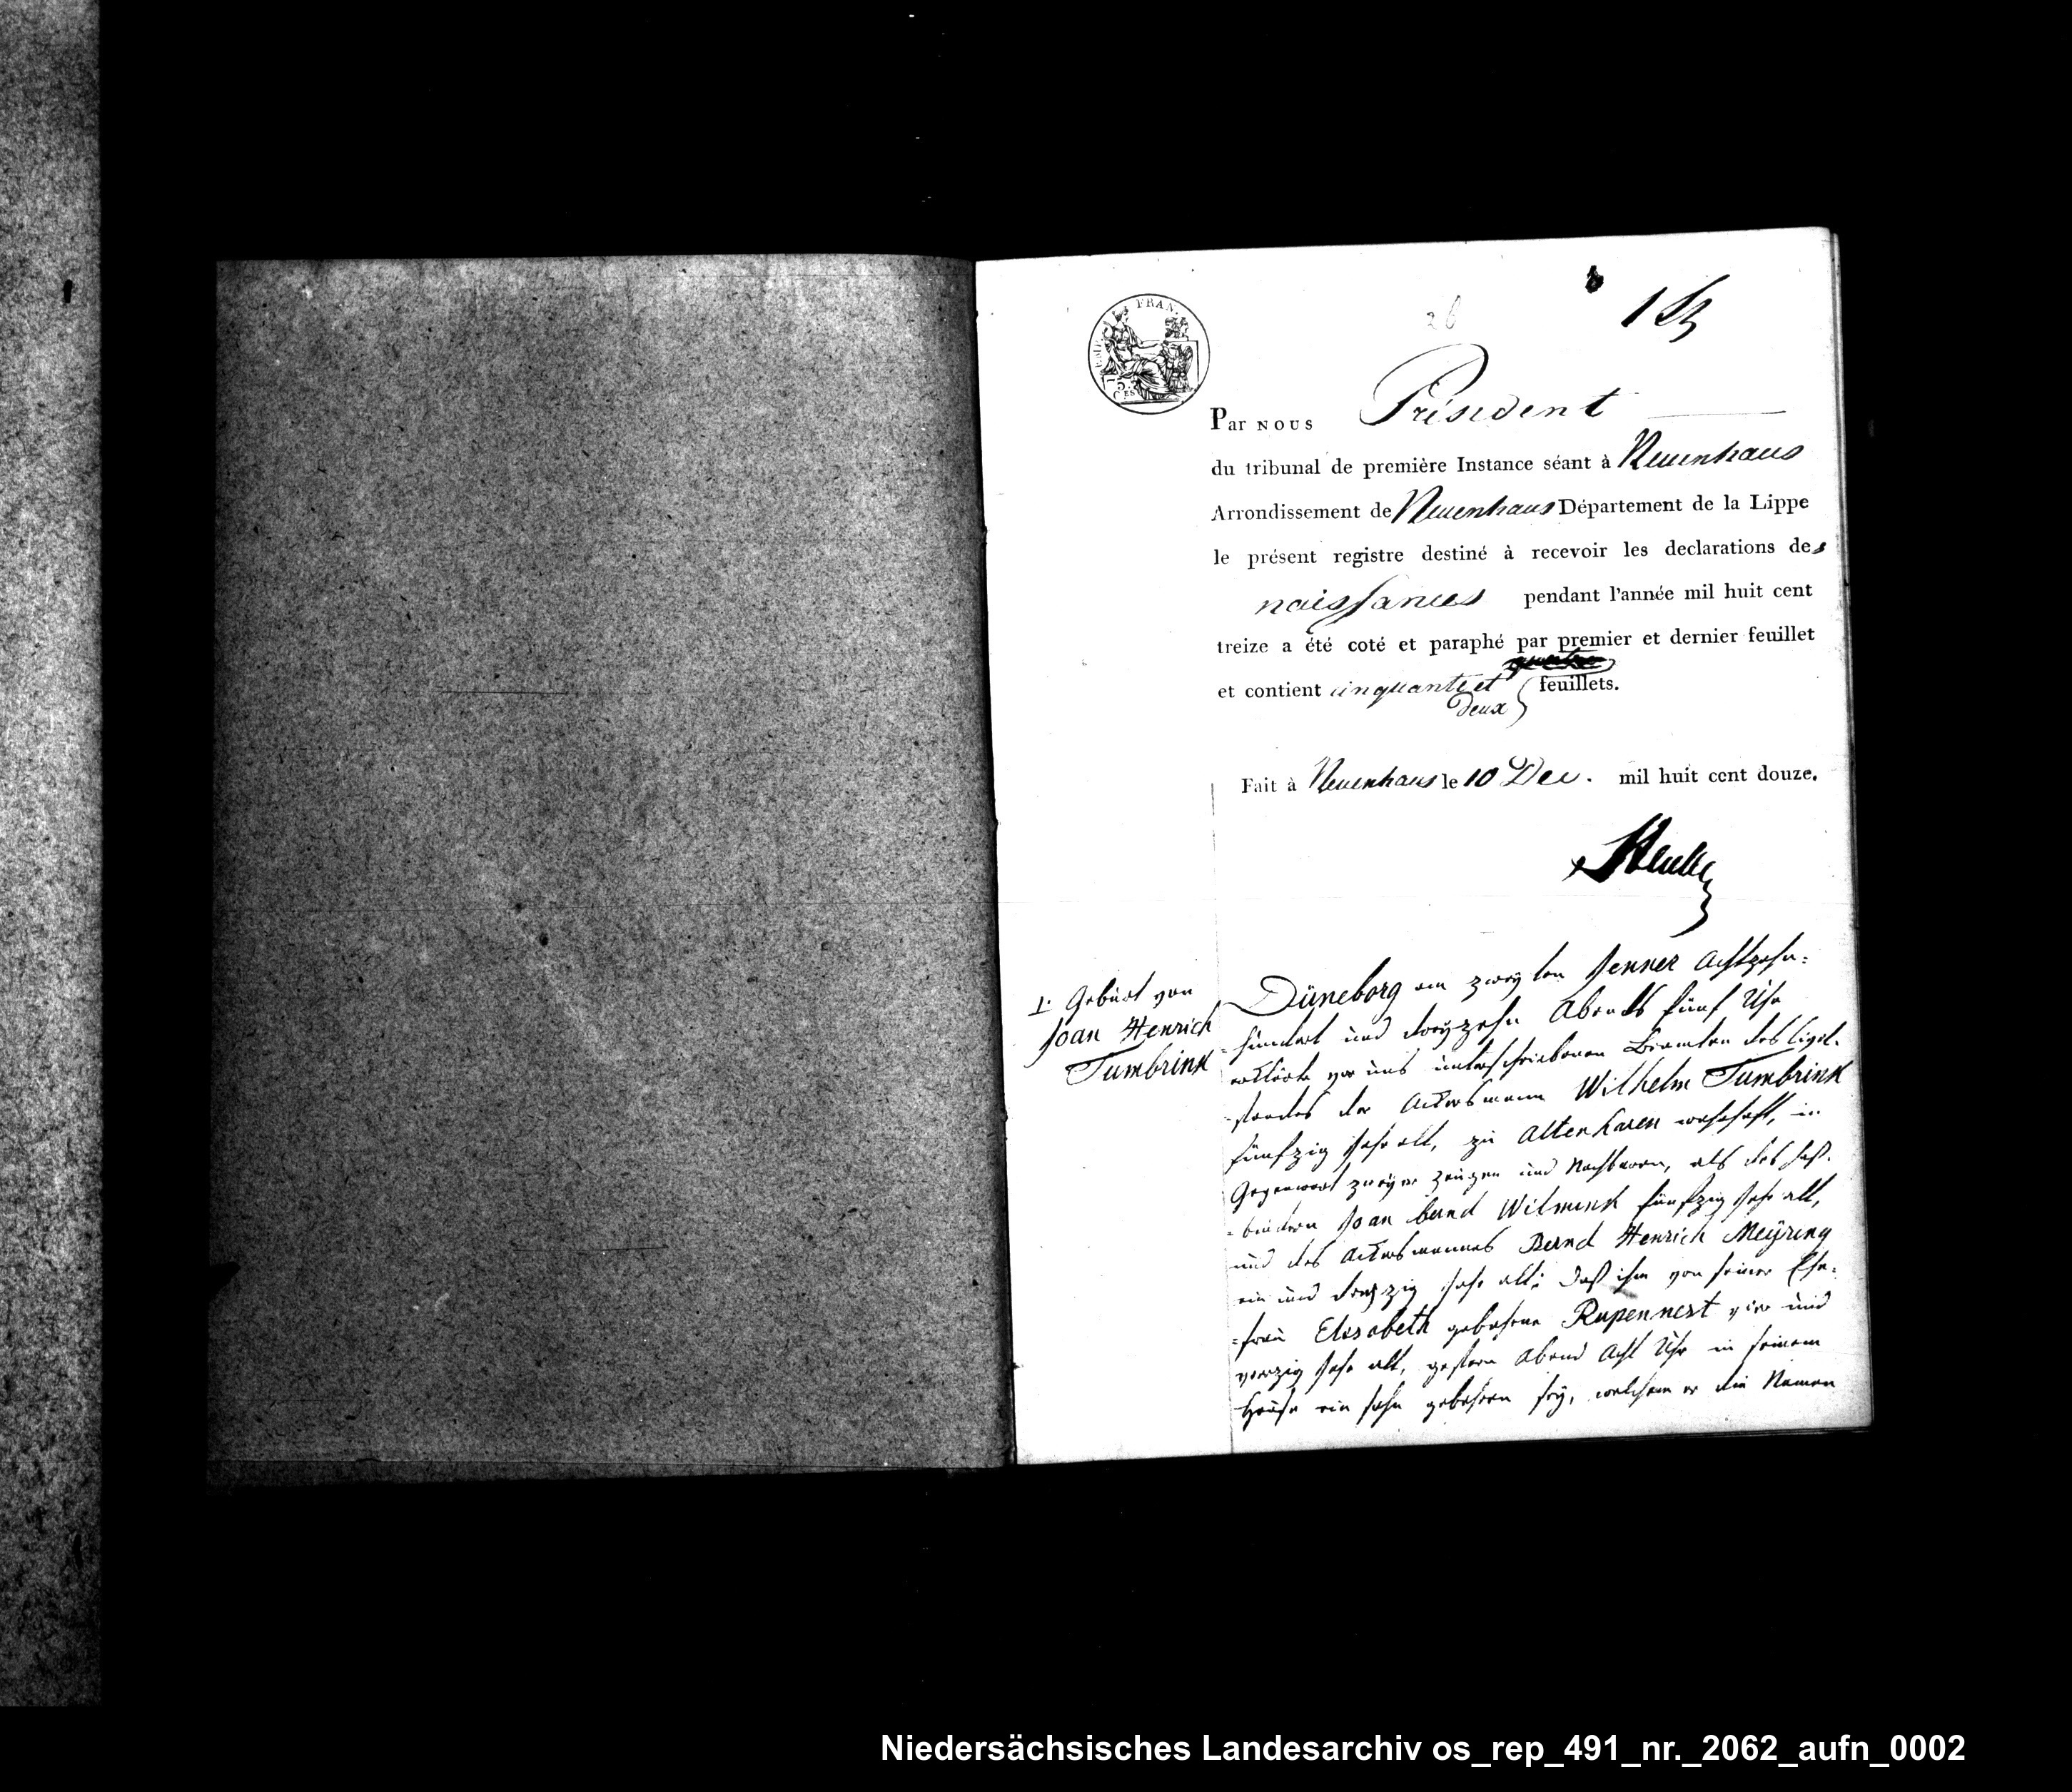 FRAN.
75.
C.ES
26
Par NOUS Président
du tribunal de première Instance séant à Neuenhaus
Arrondissement de Neuenhaus Département de la Lippe
le présent registre destiné à recevoir les declarations des
naissances pendant l'année mil huit cent
treize a été coté et paraphé par premier et dernier feuillet
et contient cinquante et deux feuillets.
Fait à Neuenhaus le 10 Dec. mil huit cent douze.
1. Geburt von
Joan Henrich
Tumbrink
Düneborg am zweyten Jenner Achtzehn-
-hundert und dreyzehn Abends fünf Uhr
erklärte vor uns unterschriebenen Beamten des Civil-
-standes der Ackersmann Wilhelm Tumbrink
fünfzig Jahr alt, zu Altenharen wohnhaft, in
Gegenwart zweyer Zeugen und Nachbaren, als des Faß-
-binders Joan bernd Wilmink fünfzig Jahr alt,
und des Ackersmannes Bernd Henrich Meÿring
ein und dreyzig Jahr alt; daß ihm von seiner Ehe-
-frau Elisabeth gebohrne Rupennest vier und
vierzig Jahr alt, gestern Abend Acht Uhr in seinem
Hause ein Sohn gebohren sey, welchem er die Namen
Niedersächsisches Landesarchiv os_rep_491_nr._2062_aufn_0002